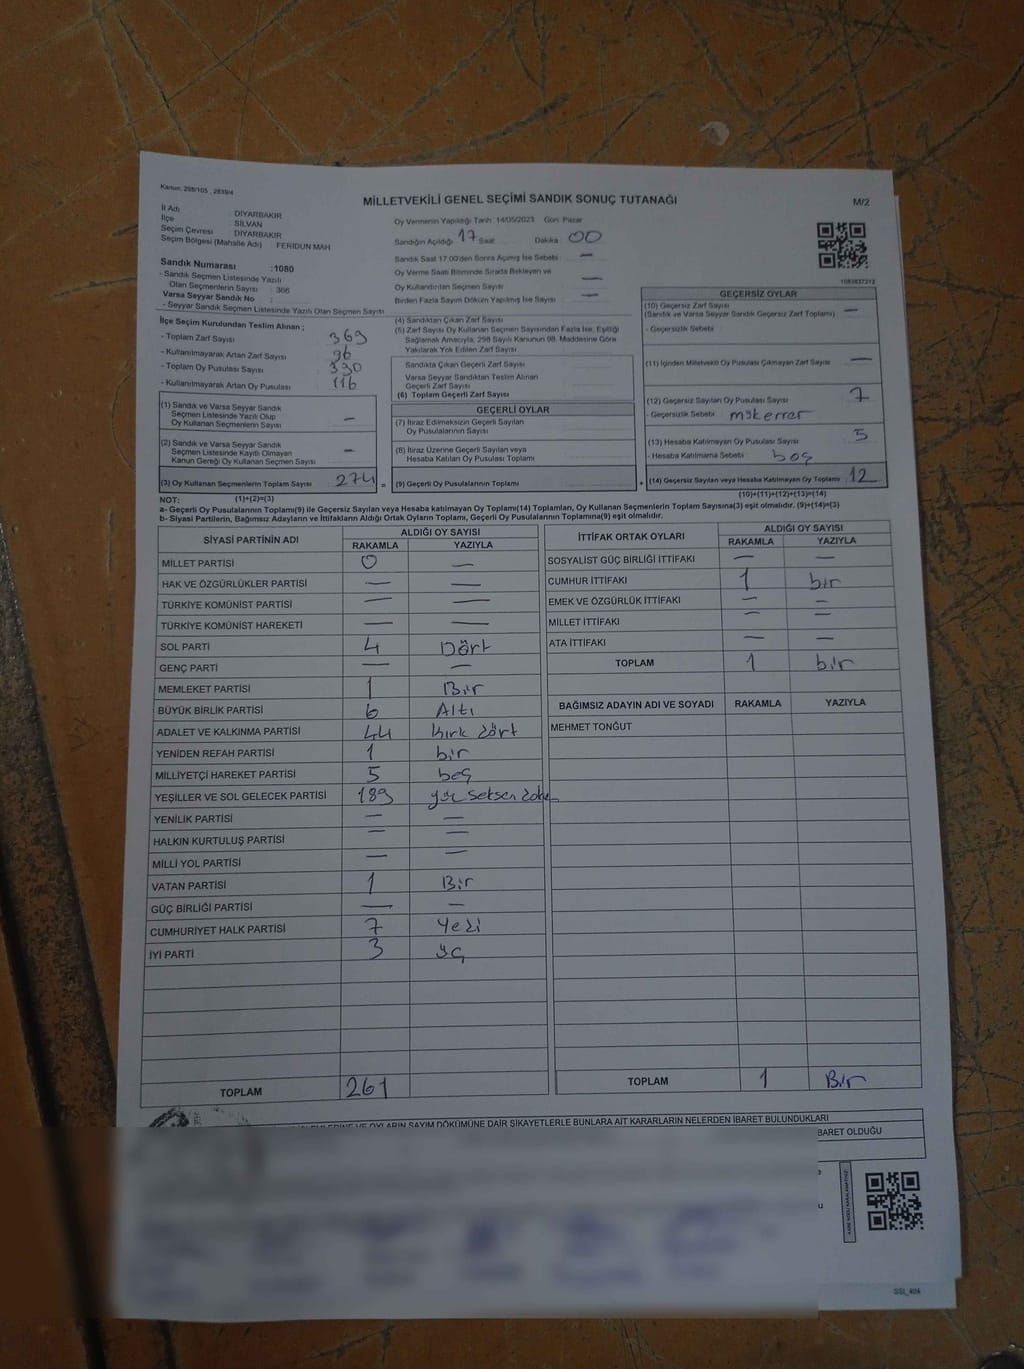 Kanun: 298/105 , 2839/4
MİLLETVEKİLİ GENEL SEÇİMİ SANDIK SONUÇ TUTANAĞI
M/2
İl Adı : DİYARBAKIR
İlçe : SİLVAN
Seçim Çevresi : DİYARBAKIR
Seçim Bölgesi (Mahalle Adı) FERİDUN MAH.
Oy Vermenin Yapıldığı Tarih: 14/05/2023 Gün: Pazar
Sandığın Açıldığı 17 Saat Dakika 00
Sandık Saat 17.00'den Sonra Açılmış İse Sebebi —
Oy Verme Saati Bitiminde Sırada Bekleyen ve
Oy Kullandırılan Seçmen Sayısı —
Birden Fazla Sayım Döküm Yapılmış İse Sayısı —
1083837212
Sandık Numarası :1080
- Sandık Seçmen Listesinde Yazılı
Olan Seçmenlerin Sayısı : 366
Varsa Seyyar Sandık No :
- Seyyar Sandık Seçmen Listesinde Yazılı Olan Seçmen Sayısı
İlçe Seçim Kurulundan Teslim Alınan ;
- Toplam Zarf Sayısı 369
- Kullanılmayarak Artan Zarf Sayısı 96
- Toplam Oy Pusulası Sayısı 330
- Kullanılmayarak Artan Oy Pusulası 116
(1) Sandık ve Varsa Seyyar Sandık
Seçmen Listesinde Yazılı Olup
Oy Kullanan Seçmenlerin Sayısı —
(2) Sandık ve Varsa Seyyar Sandık
Seçmen Listesinde Kayıtlı Olmayan
Kanun Gereği Oy Kullanan Seçmen Sayısı —
(3) Oy Kullanan Seçmenlerin Toplam Sayısı 274 =
(4) Sandıktan Çıkan Zarf Sayısı
(5) Zarf Sayısı Oy Kullanan Seçmen Sayısından Fazla İse, Eşitliği
Sağlamak Amacıyla, 298 Sayılı Kanunun 98. Maddesine Göre
Yakılarak Yok Edilen Zarf Sayısı
Sandıkta Çıkan Geçerli Zarf Sayısı
Varsa Seyyar Sandıktan Teslim Alınan
Geçerli Zarf Sayısı
(6) Toplam Geçerli Zarf Sayısı
GEÇERLİ OYLAR
(7) İtiraz Edilmeksizin Geçerli Sayılan
Oy Pusulalarının Sayısı
(8) İtiraz Üzerine Geçerli Sayılan veya
Hesaba Katılan Oy Pusulası Toplamı
(9) Geçerli Oy Pusulalarının Toplamı +
GEÇERSİZ OYLAR
(10) Geçersiz Zarf Sayısı
(Sandık ve Varsa Seyyar Sandık Geçersiz Zarf Toplamı) —
- Geçersizlik Sebebi
(11) İçinden Milletvekili Oy Pusulası Çıkmayan Zarf Sayısı —
(12) Geçersiz Sayılan Oy Pusulası Sayısı 7
- Geçersizlik Sebebi mükerrer
(13) Hesaba Katılmayan Oy Pusulası Sayısı 5
- Hesaba Katılmama Sebebi boş
(14) Geçersiz Sayılan veya Hesaba Katılmayan Oy Toplamı 12
NOT: (1)+(2)=(3)
(10)+(11)+(12)+(13)=(14)
a- Geçerli Oy Pusulalarının Toplamı(9) ile Geçersiz Sayılan veya Hesaba katılmayan Oy Toplamı(14) Toplamları, Oy Kullanan Seçmenlerin Toplam Sayısına(3) eşit olmalıdır. (9)+(14)=(3)
b- Siyasi Partilerin, Bağımsız Adayların ve İttifakların Aldığı Ortak Oyların Toplamı, Geçerli Oy Pusulalarının Toplamına(9) eşit olmalıdır.
SİYASİ PARTİNİN ADI ALDIĞI OY SAYISI
RAKAMLA YAZIYLA
MİLLET PARTİSİ 0 —
HAK VE ÖZGÜRLÜKLER PARTİSİ — —
TÜRKİYE KOMÜNİST PARTİSİ — —
TÜRKİYE KOMÜNİST HAREKETİ — —
SOL PARTİ 4 Dört
GENÇ PARTİ — —
MEMLEKET PARTİSİ 1 Bir
BÜYÜK BİRLİK PARTİSİ 6 Altı
ADALET VE KALKINMA PARTİSİ 44 kırk dört
YENİDEN REFAH PARTİSİ 1 bir
MİLLİYETÇİ HAREKET PARTİSİ 5 beş
YEŞİLLER VE SOL GELECEK PARTİSİ 189 yüz seksen dokuz
YENİLİK PARTİSİ — —
HALKIN KURTULUŞ PARTİSİ — —
MİLLİ YOL PARTİSİ — —
VATAN PARTİSİ 1 Bir
GÜÇ BİRLİĞİ PARTİSİ — —
CUMHURİYET HALK PARTİSİ 7 Yedi
İYİ PARTİ 3 üç
TOPLAM 261
İTTİFAK ORTAK OYLARI ALDIĞI OY SAYISI
RAKAMLA YAZIYLA
SOSYALİST GÜÇ BİRLİĞİ İTTİFAKI — —
CUMHUR İTTİFAKI 1 bir
EMEK VE ÖZGÜRLÜK İTTİFAKI — —
MİLLET İTTİFAKI — —
ATA İTTİFAKI — —
TOPLAM 1 bir
BAĞIMSIZ ADAYIN ADI VE SOYADI RAKAMLA YAZIYLA
MEHMET TONĞUT
TOPLAM 1 Bir
OYLARIN SAYIM DÖKÜMÜNE DAİR ŞİKAYETLERLE BUNLARA AİT KARARLARIN NELERDEN İBARET BULUNDUKLARI
BARET OLDUĞU
SSİ_40A